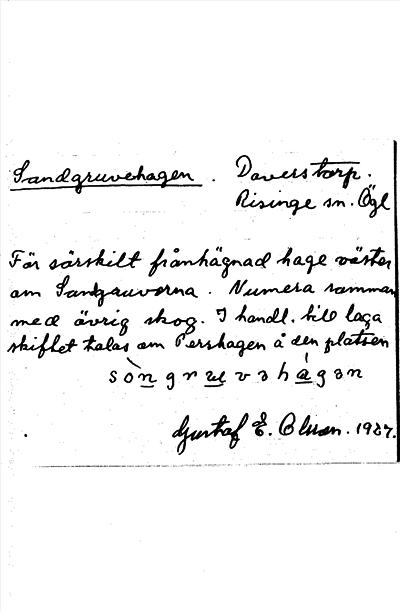 Sandgruvehagen. Daverstorp.
Risinge sn. Ögl
För särskilt frånhägnad hage väster
om Sandgruvorna. Numera samman
med övrig skog. I handl. till laga
skiftet talas om Pershagen å den platsen
sòngruvəhágən
Gustaf E. Olsson. 1937.